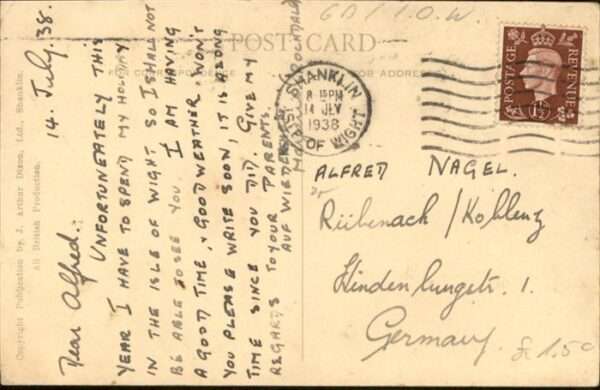 GB / I.O.W.
POST CARD
FOR ADDRESS
SHANKLIN
8 15 PM
14 JLY
1938
ISLE OF WIGHT
POSTAGE
REVENUE
1½
14. July. 38.
Dear Alfred.
UNFORTUNEATELY THIS
YEAR I HAVE TO SPEND MY HOLIDAY
IN THE ISLE OF WIGHT SO I SHALL NOT
BE ABLE TO SEE YOU. I AM HAVING
A GOOD TIME, & GOOD WEATHER. WON'T
YOU PLEASE WRITE SOON, IT IS A LONG
TIME SINCE YOU DID. GIVE MY
REGARDS TO YOUR PARENTS.
AUF WIEDERSEHEN
ROCHDALE
ALFRED NAGEL.
Rübenach / Koblenz
Hindenburgstr. 1.
Germany.
£1.50
Copyright Publication by J. Arthur Dixon, Ltd., Shanklin.
All British Production.